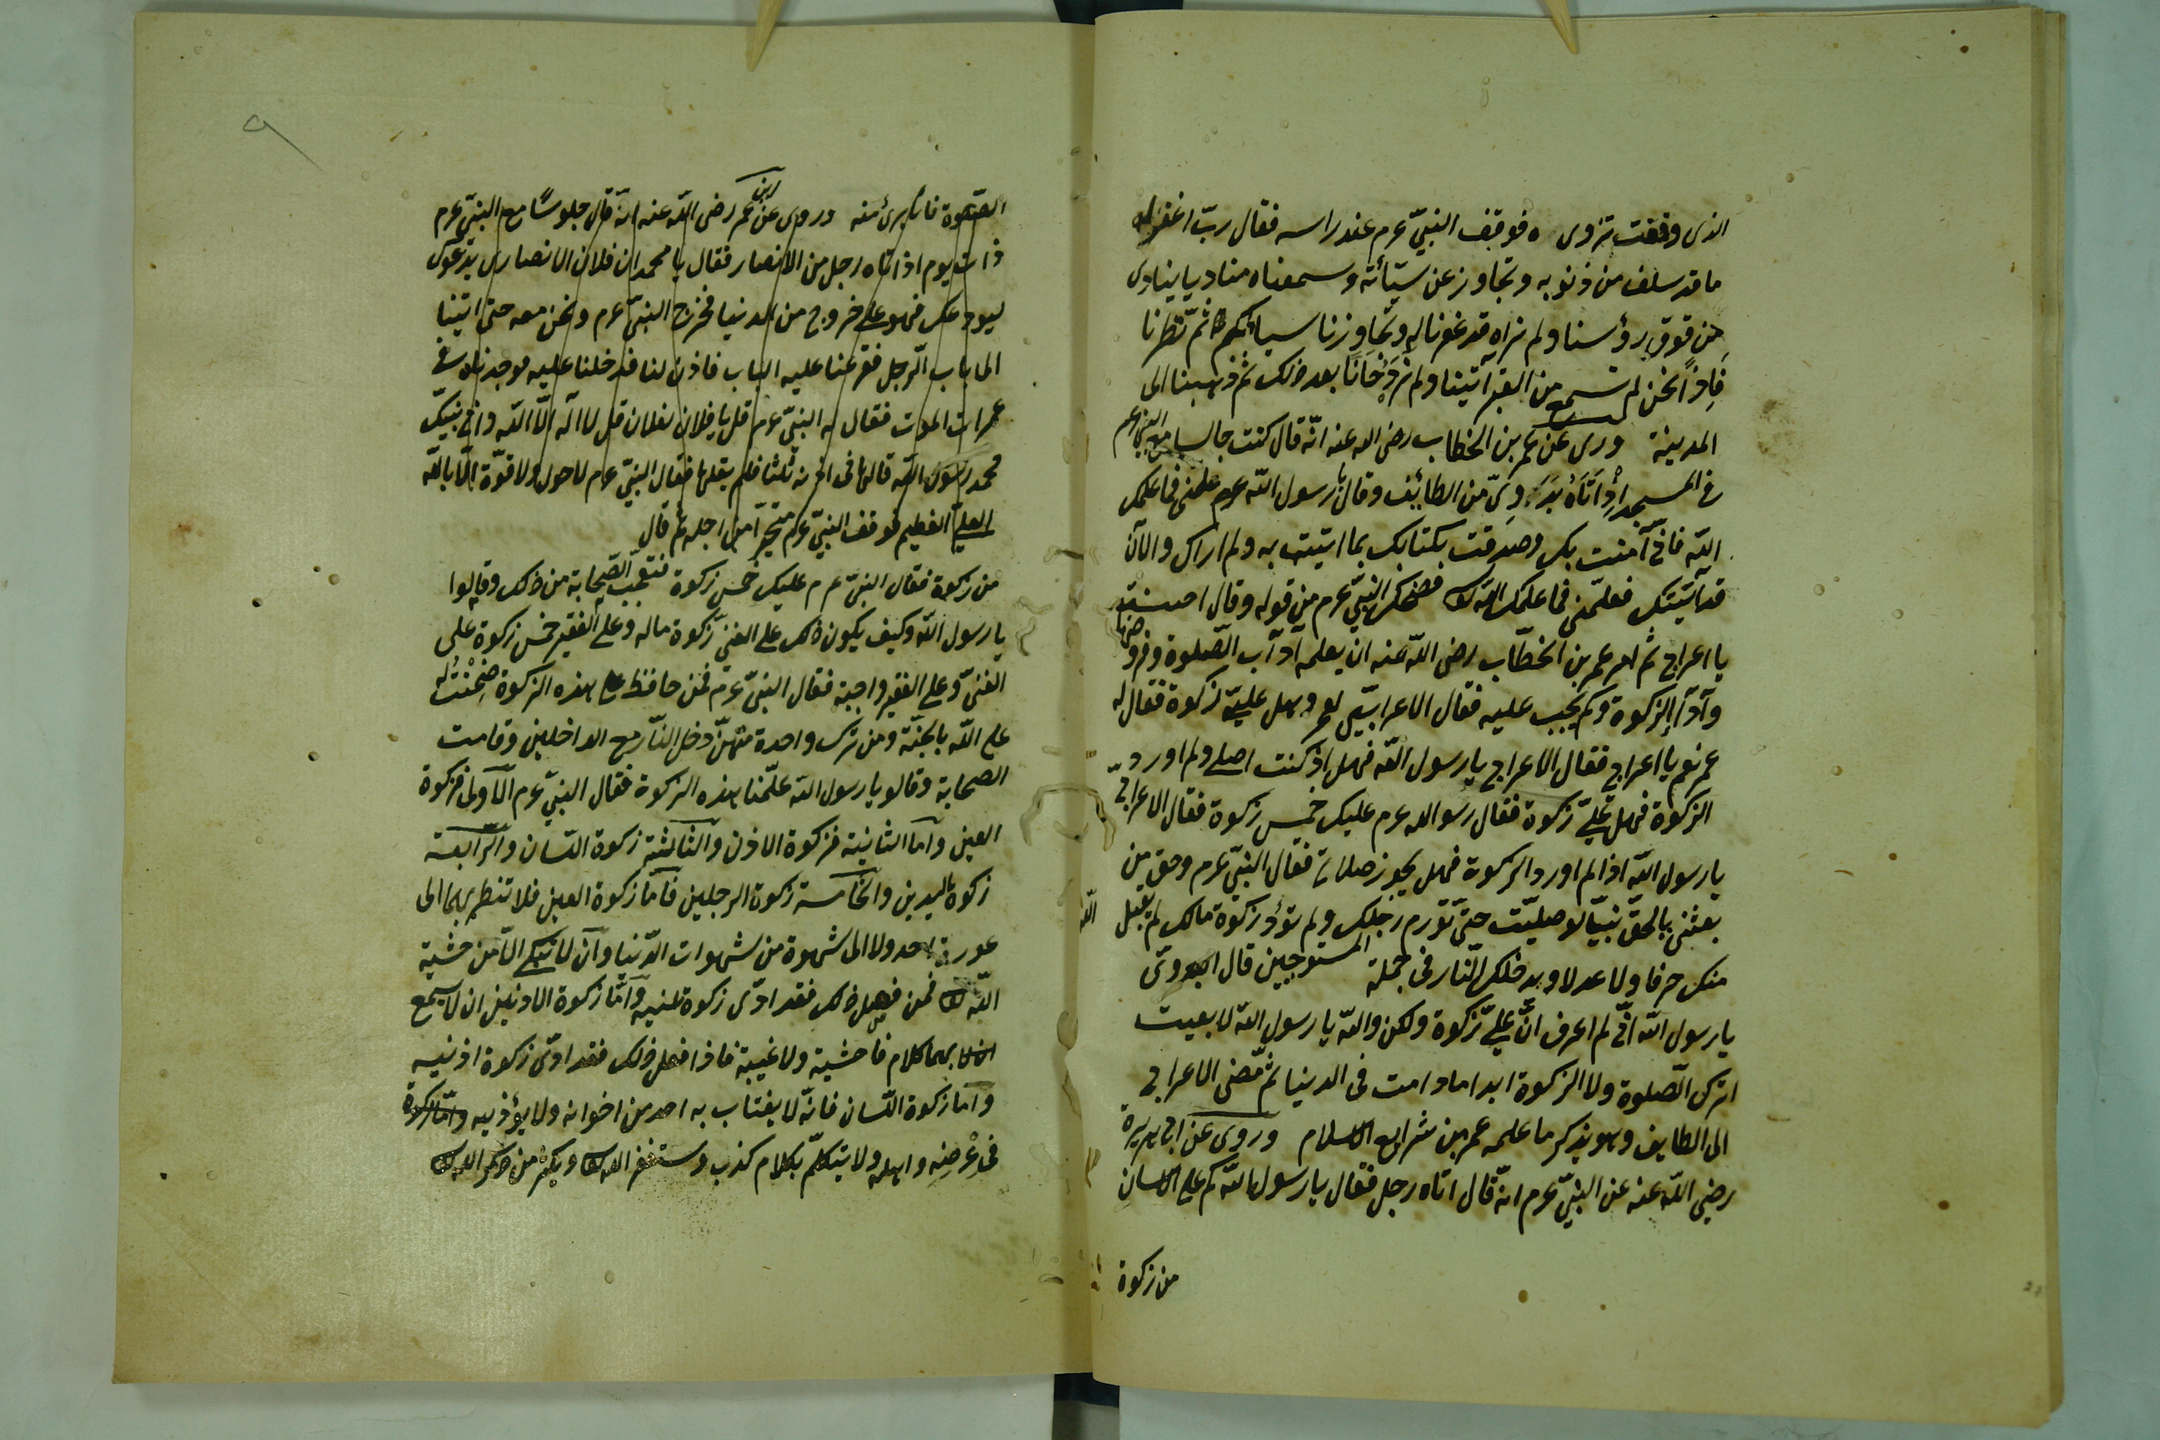 الذى وقفت تزوى ه فوقف النبىّ عرم عند راسه فقال ربّ اغفر له
ما قد سلف من ذنوبه وتجاوز عن سيّأته وسمعناه مناديا ينادى
من فوق رؤسنا ولم نراه قد غفرنا له وتجاوزنا ثمّ نظرنا
فاذا نحن لم نسمع من القبر ولم بعد ذلك ثم ذهبنا الى
المدينة وروى عن عمر بن الخطاب رضى الله عنه انّه قال كنت جالسا مع النبىّ عرم
فى المسجد اذ اتاه بدوىّ من الطائف وقال يا رسول الله عرم علمنى مما علمك
الله فانى آمنت بك وصدقت بكتابك بما اتيت به ولم اراك والآن
قد آتيتك فعلّمنى مما علمك الله فضحك النبىّ عرم من قوله وقال احسنت
يا اعرابى ثم امر عمر بن الخطّاب رضى الله عنه ان يعلمه آداب الصّلوة وفروضها
وآدآ الزكوة وكم يجب عليه فقال الاعرابىّ وهل علىّ زكوة فقال له
عمر نعم يا اعرابى فقال الاعرابى يا رسول الله فهل اذ كنت اصلى ولم اورد
الزكوة فهل علىّ زكوة فقال رسو الله عرم عليك خمس زكوة فقال الاعرابىّ
يا رسول الله اذا لم اورد الزكوة فهل يجوز صلاتى فقال النبىّ عرم وحق من
بعثنى بالحقّ نبيّا لو صليّت حتّى تورم رجلك ولم تؤد زكوة مالك لم يقبل الله
منك حرفا ولا عدلا ويدخلك النّار فى جملة المستوجبين قال البدوىّ
يا رسول الله انّى لم اعرف انّ علىّ زكوة ولكن والله يا رسول الله لا بقيت
اترك الصّلوة ولا الزكوة ابدا ما دامت فى الدنيا ثمّ مضى الاعرابى
الى الطايف وهو يذكر ما علمه عمر من شرايع الاسلام وروى عن ابى هريرة
رضى الله عنه عن النبىّ عرم انّه قال اتاه رجل فقال يا رسول الله كم على الانسان
من زكوة
٩
فانا برئ منه وروى عن ابن عمر رضى الله عنه انّه قال جلوسًا مع النبىّ عرم
ذات يوم اذ اتاه رجل من الانصار فقال يا محمد ان فلان الانصارى يدعوك
ليودعك فهو على خروج من الدنيا فخرج النبىّ عرم ونحن معه حتّى اتينا
الى باب الرّجل فقرعنا عليه الباب فاذن لنا فدخلنا عليه فوجدناه فى
غمرات الموت فقال له النبىّ عرم قل يا فلان بن فلان قل لا اله الّا الله وانى نبيّك
محمد رسول الله قالها فى اذنه ثلثا فلم يقلها فقال النبىّ عرم لا حول ولا قوّة الّا بالله
العلىّ العظيم فوقف النبىّ عرم متحيّرا من اجله ثم قال
من زكوة فقال النبىّ عرم عليك خمس زكوة فتعجّب الصّحابة من ذلك وقالوا
يا رسول الله وكيف يكون ذلك على الغنىّ زكوة ماله وعلى الفقير خمس زكوة على
الغنىّ وعلى الفقير واجبة فقال النبىّ عرم فمن حافظ على هذه الزكوة ضمنت له
على الله بالجنّة ومن ترك واحدة منهنّ دخل النّار مع الداخلين وقامت
الصحابة وقالو يا رسول الله علّمنا هذه الزكوة فقال النبىّ عرم الآولى فزكوة
العين وآما الثانية فزكوة الاذن والثالثة زكوة اللسان والرّابعة
زكوة اليدين والخامسة زكوة الرجلين فآما زكوة العين فلا تنظر بهما الى
عورة احد ولا الى شهوة من شهوات الدّنيا وآن لا تبكى الّا من خشية
الله فمن فعل ذلك فقد ادّى زكوة عينيه وآمّا زكوة الاذنين ان لا يسمع
بهما كلام فاحشية ولا غيبة فاذا فعل ذلك فقد ادّى زكوة اذنيه
وآما زكوة اللّسان فانّه لا يغتاب به احد من اخوانه ولا يؤذيه
فى عرضه واهله ولا يتكلّم بكلام كذب ويستغفر الله ويكثر من ذكر الله